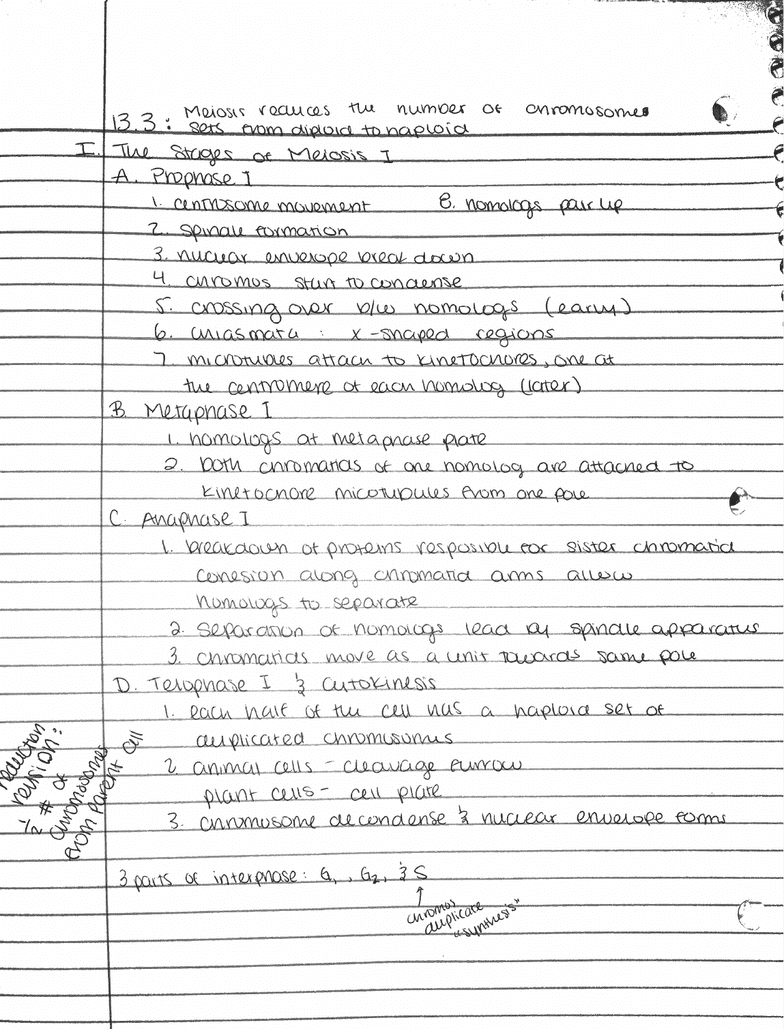 13.3: Meiosis reduces the number of chromosomes
sets from diploid to haploid
I. The Stages of Meiosis I
A. Prophase I
1. centrosome movement 8. homologs pair up
2. spindle formation
3. nuclear envelope break down
4. chromos start to condense
5. crossing over b/w homologs (early)
6. chiasmata : x-shaped regions
7. microtubles attach to kinetochores, one at
the centromere of each homolog (later)
B. Metaphase I
1. homologs at metaphase plate
2. both chromatids of one homolog are attached to
kinetochore micotubules from one pole
C. Anaphase I
1. breakdown of proteins resposible for sister chromatid
cohesion along chromatid arms allow
homologs to separate
2. separation of homologs lead by spindle apparatus
3. chromatids move as a unit towards same pole
D. Telophase I & Cytokinesis
1. each half of the cell has a haploid set of
duplicated chromosomes
2. animal cells - cleavage furrow
plant cells - cell plate
3. chromosome decondense & nuclear envelope forms
reduction
division:
1/2 # of
chromosomes
from parent cell
3 parts of interphase: G1, G2, & S
↑
chromos
duplicate
"synthesis"